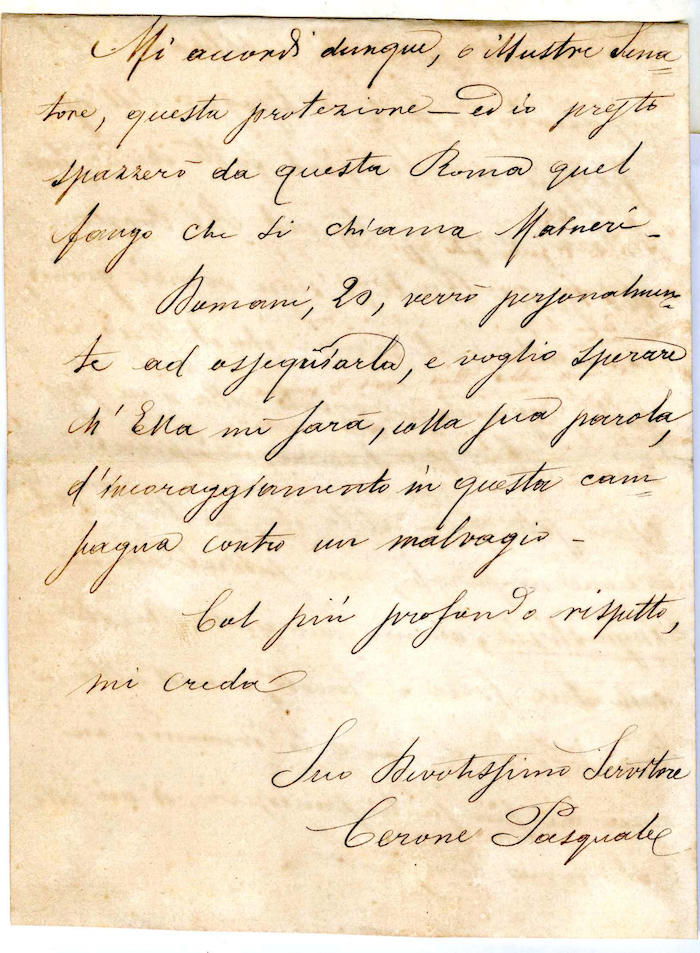 Mi accordi dunque, o illustre Sena=
tore, questa protezione — ed io presto
spazzerò da questa Roma quel
fango che si chiama
Domani, 20, verrò personalmen=
te ad ossequiarla, e voglio sperare
ch' Ella mi sarà, colla sua parola,
d'incoraggiamento in questa cam=
pagna contro un malvagio -
Col più profondo rispetto,
mi creda
Suo Devotissimo Servitore
Cerone Pasquale